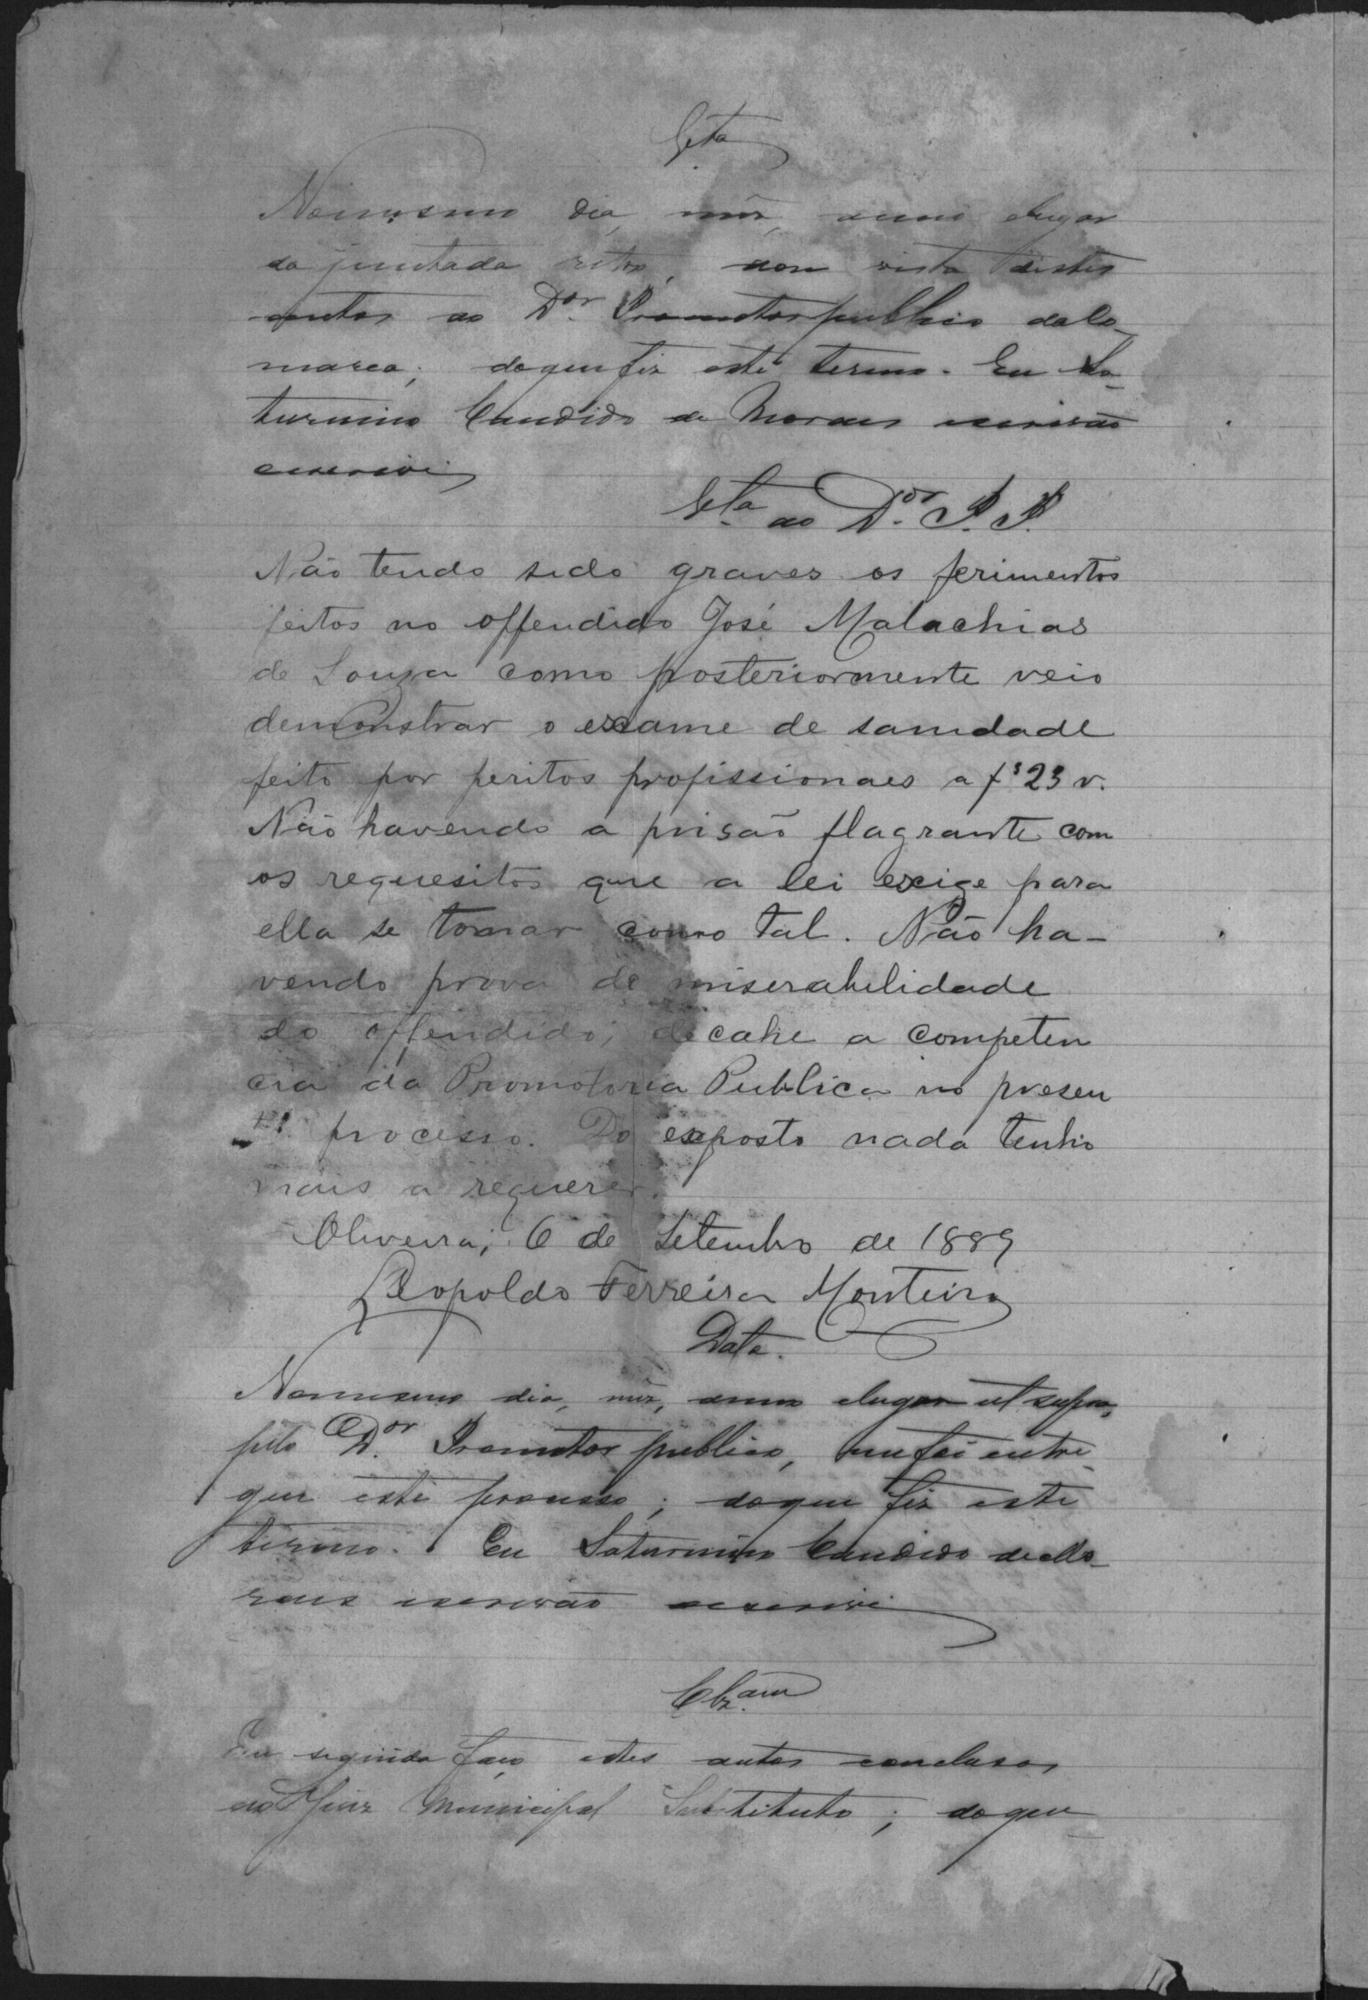 Vta
No mesmo dia, mez, anno e lugar
da juntada retro, dou vista destes
autos ao Dor. Promotor publico da Co-
marca; do que fiz este termo. Eu Sa-
turnino Candido de Moraes escrivão
escrevi
Vta ao Dor. P. P.
Não tendo sido graves os ferimentos
feitos no offendido José Malachias
de Souza como posteriormente veio
demonstrar o exame de sanidade
feito por peritos profissionaes a fs 23 v.
Não havendo a prisão flagrante com
os requesitos que a lei exige para
ella se tomar como tal. Não ha-
vendo prova de miserabelidade
do offendido; decahe a competen
cia da Promotoria Publica no presen
te processo. Do exposto nada tenho
mais a requerer.
Oliveira, 6 de Setembro de 1889
Leopoldo Ferreira Monteiro
Data.
No mesmo dia, mez, anno e lugar ut supra,
pelo Dor. Promotor publico, me foi entre-
gue este processo; do que fiz este
termo. Eu Saturnino Candido de Mo-
raes escrivão escrevi
Clzam
Em seguida faço estes autos conclusos
ao Juiz Municipal Substituto; do que